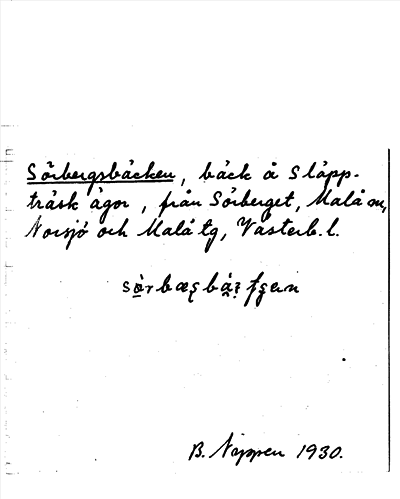 Sörbergsbäcken, bäck å Släpp-
träsk ägor, från Sörberget, Malå sn,
Norsjö och Malå tg, Västerb. l.
B. Nappen 1930.